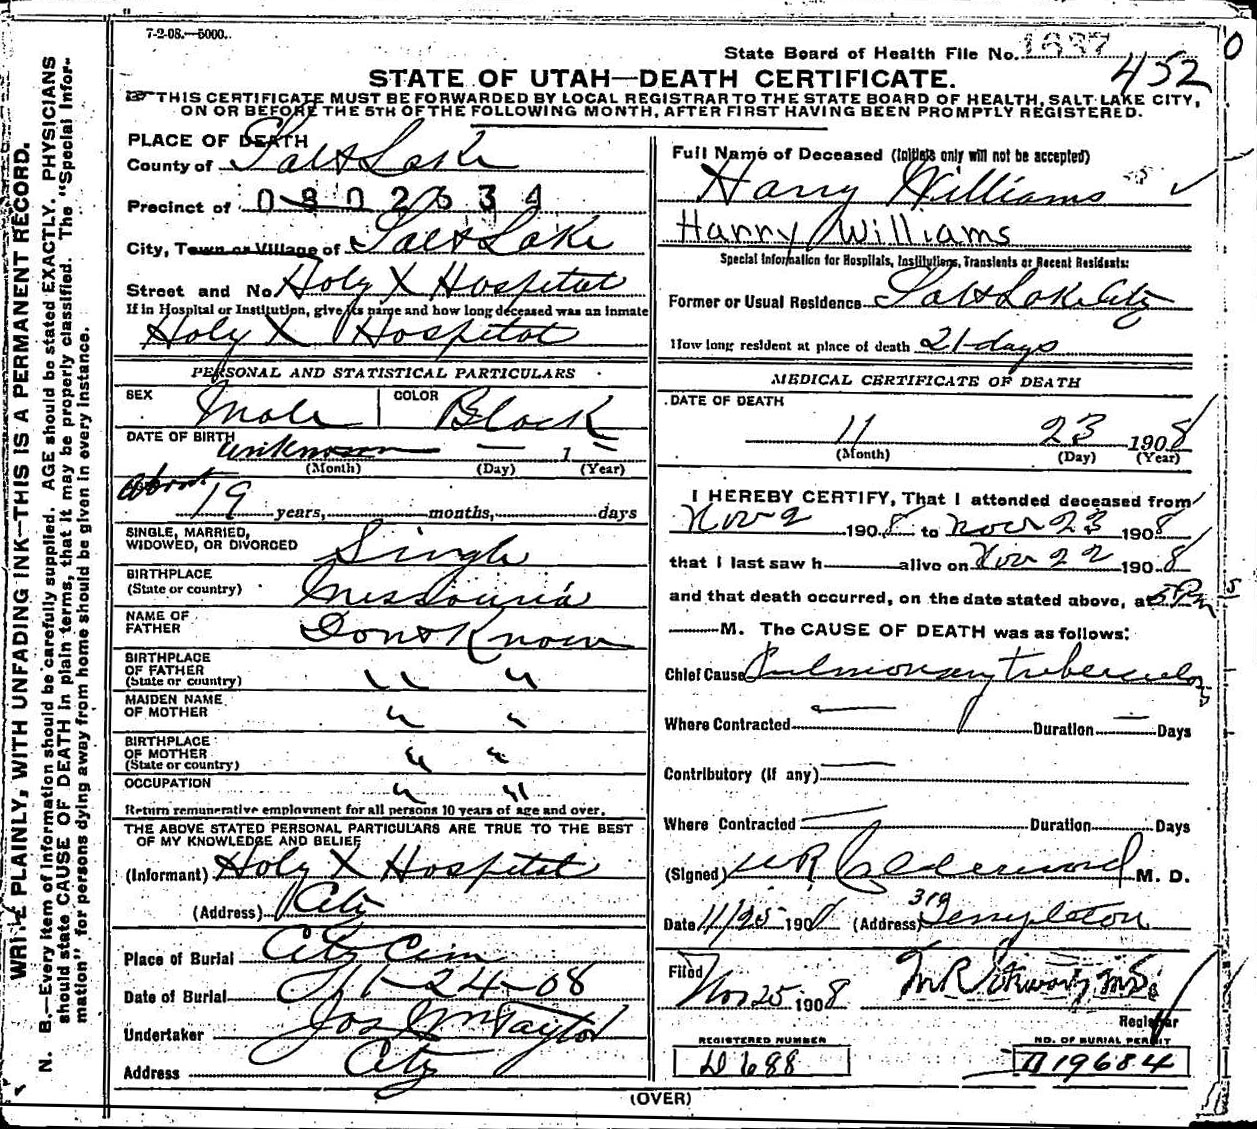 7-2-08.—5000.
State Board of Health File No. 1637
452
STATE OF UTAH—DEATH CERTIFICATE.
THIS CERTIFICATE MUST BE FORWARDED BY LOCAL REGISTRAR TO THE STATE BOARD OF HEALTH, SALT LAKE CITY,
ON OR BEFORE THE 5TH OF THE FOLLOWING MONTH, AFTER FIRST HAVING BEEN PROMPTLY REGISTERED.
WRITE PLAINLY, WITH UNFADING INK—THIS IS A PERMANENT RECORD.
N. B.—Every item of information should be carefully supplied. AGE should be stated EXACTLY. PHYSICIANS
should state CAUSE OF DEATH in plain terms, that it may be properly classified. The "Special Infor-
mation" for persons dying away from home should be given in every instance.
PLACE OF DEATH
County of Salt Lake
Precinct of 0802634
City, Town or Village of Salt Lake
Street and No. Holy X Hospital
If in Hospital or Institution, give its name and how long deceased was an inmate
Holy X Hospital
PERSONAL AND STATISTICAL PARTICULARS
SEX Male COLOR Black
DATE OF BIRTH unknown — 1 —
(Month) (Day) (Year)
about 19 years, months, days
SINGLE, MARRIED,
WIDOWED, OR DIVORCED Single
BIRTHPLACE
(State or country) Missouria
NAME OF
FATHER Dont Know
BIRTHPLACE
OF FATHER
(State or country) " "
MAIDEN NAME
OF MOTHER " "
BIRTHPLACE
OF MOTHER
(State or country) " "
OCCUPATION " "
Return remunerative employment for all persons 10 years of age and over.
THE ABOVE STATED PERSONAL PARTICULARS ARE TRUE TO THE BEST
OF MY KNOWLEDGE AND BELIEF
(Informant) Holy X Hospital
(Address) City
Place of Burial City Cem
Date of Burial 11-24-08
Undertaker Jos Wm Taylor
Address City
Full Name of Deceased (Initials only will not be accepted)
Harry Williams
Harry Williams
Special Information for Hospitals, Institutions, Transients or Recent Residents:
Former or Usual Residence Salt Lake City
How long resident at place of death 21 days
MEDICAL CERTIFICATE OF DEATH
DATE OF DEATH
11 23 1908
(Month) (Day) (Year)
I HEREBY CERTIFY, That I attended deceased from
Nov 2 1908 to Nov 23 1908
that I last saw h alive on Nov 22 1908
and that death occurred, on the date stated above, at 5 Pm
M. The CAUSE OF DEATH was as follows:
Chief Cause Pulmonary tuberculosis
Where Contracted — Duration — Days
Contributory (if any) —
Where Contracted — Duration Days
(Signed) W R Calderwood M. D.
Date 11/25 1908 (Address) 319 Templeton
Filed Nov 25 1908 M.D.
Registrar
REGISTERED NUMBER
D 688
NO. OF BURIAL PERMIT
A 19684
(OVER)